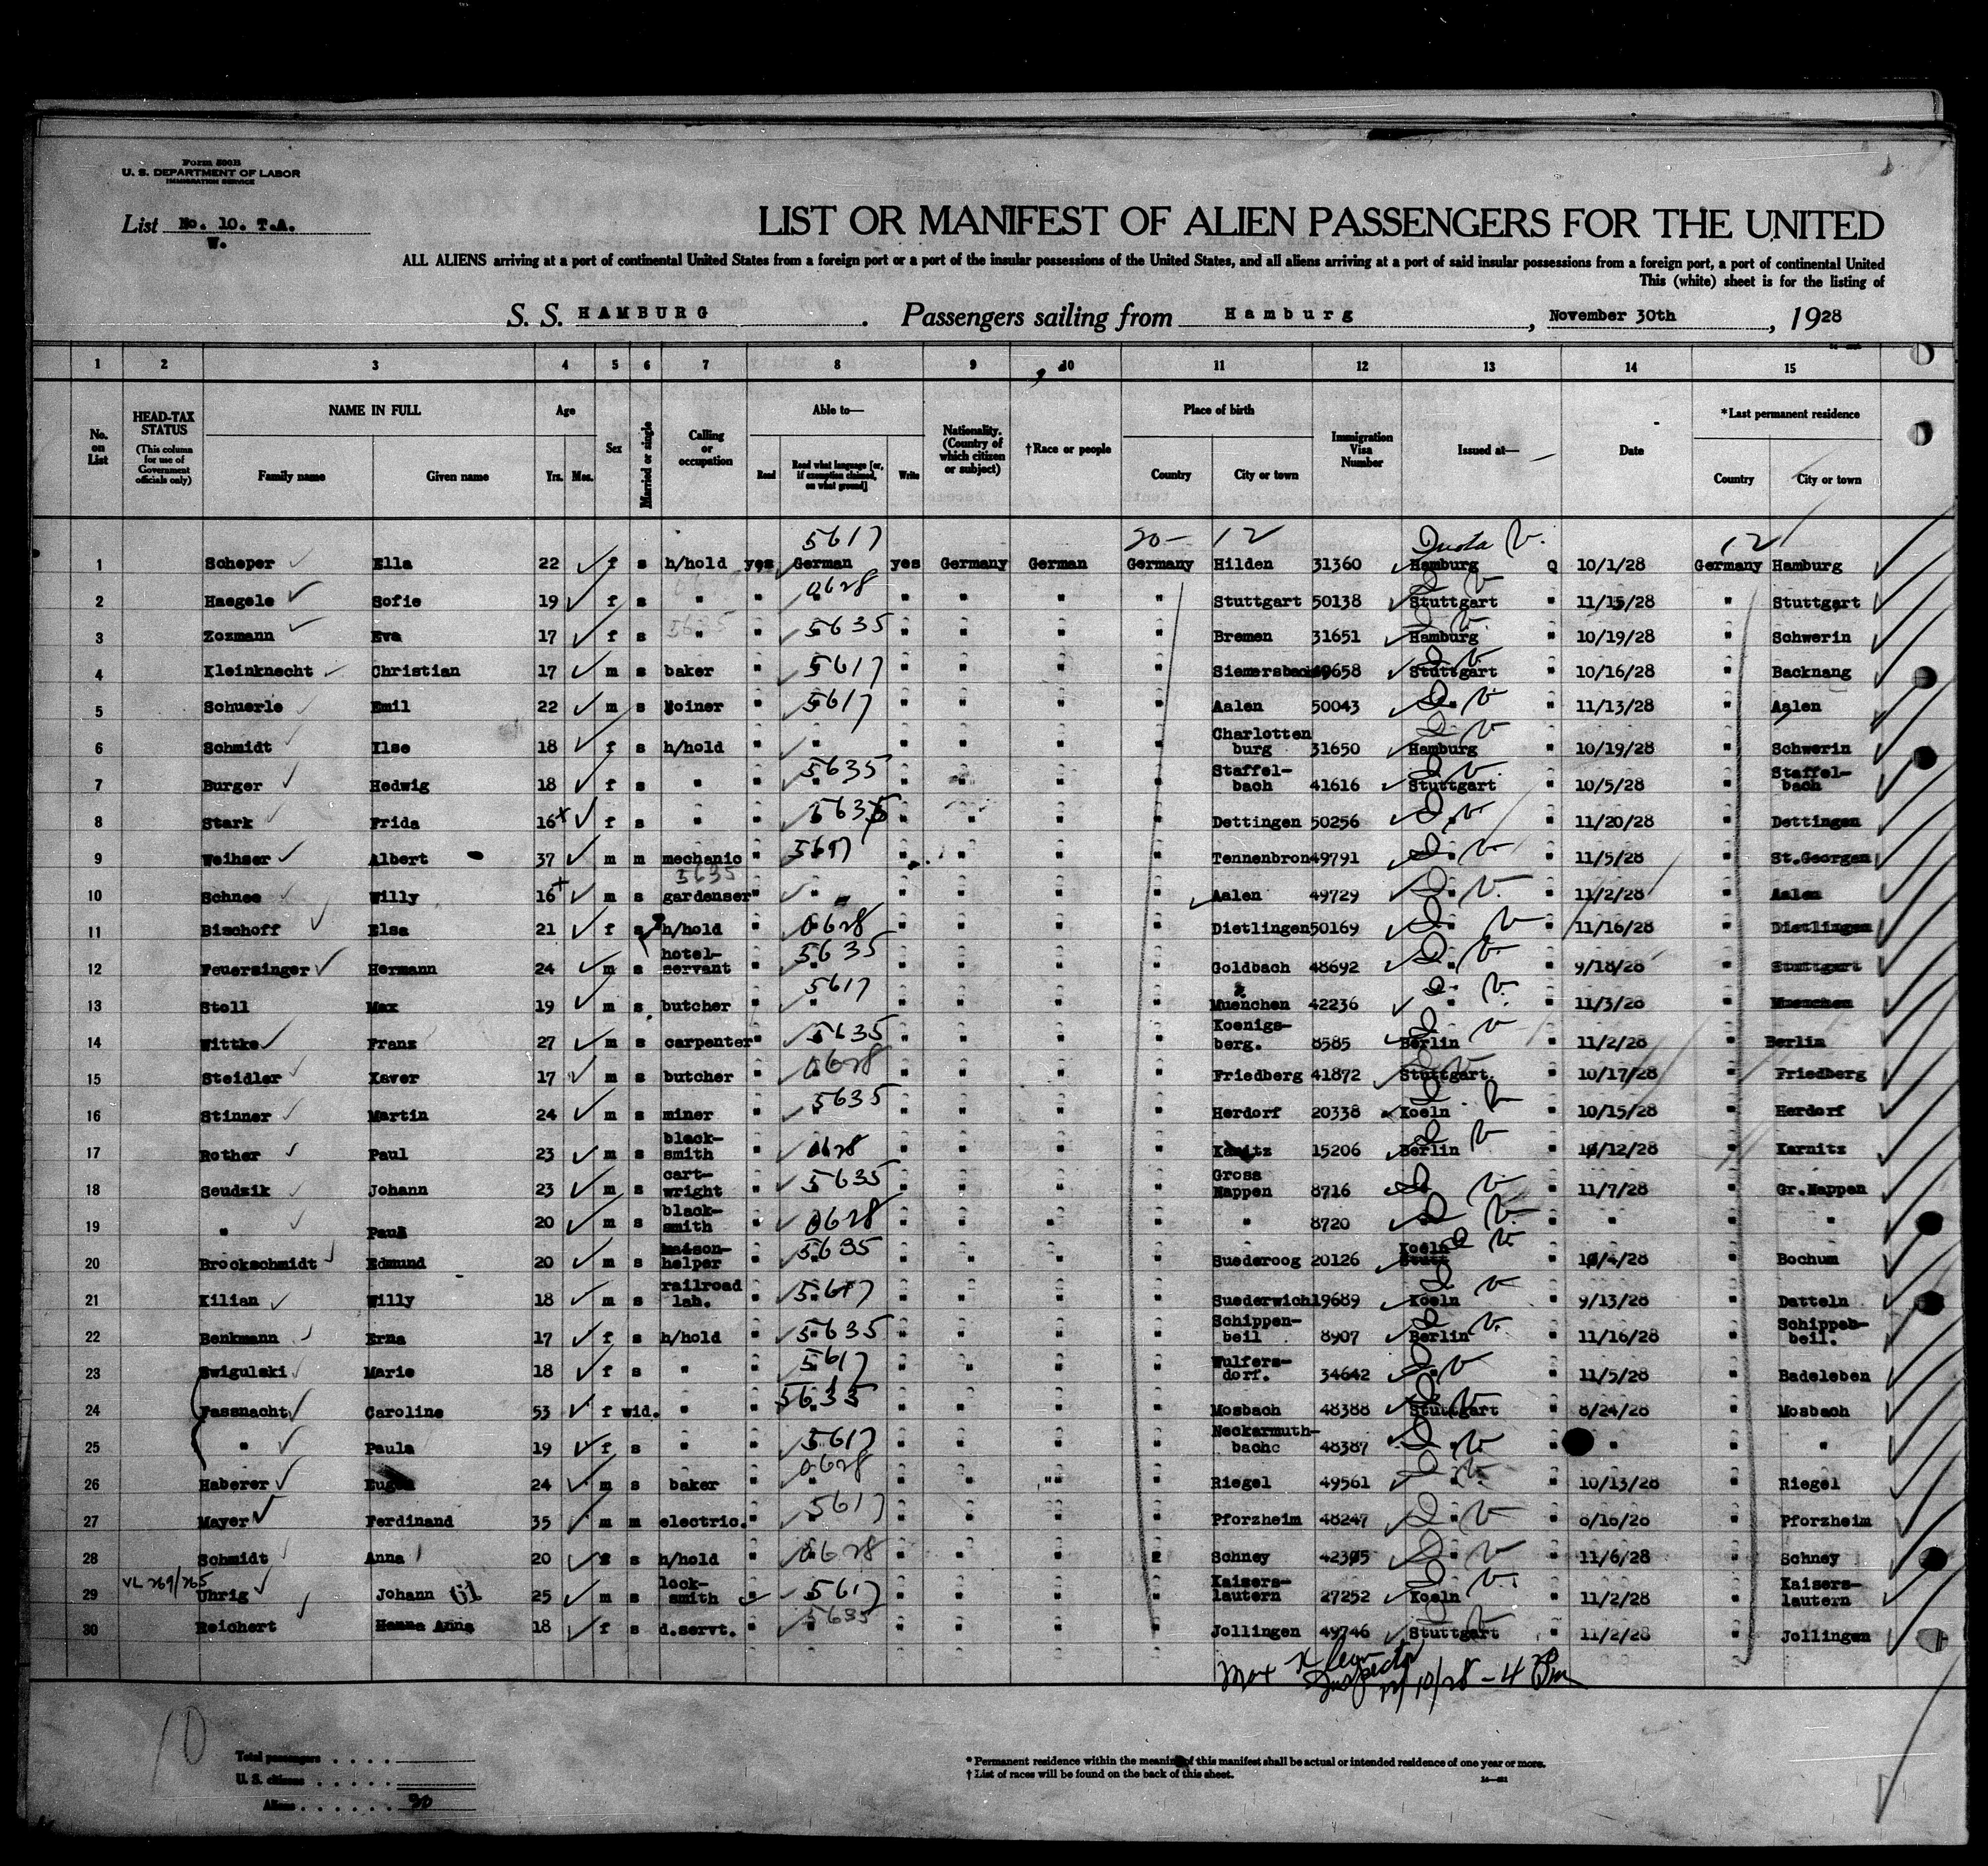 Form 500B
U. S. DEPARTMENT OF LABOR
IMMIGRATION SERVICE
List No. 10. T.A.
W.
LIST OR MANIFEST OF ALIEN PASSENGERS FOR THE UNITED
ALL ALIENS arriving at a port of continental United States from a foreign port or a port of the insular possessions of the United States, and all aliens arriving at a port of said insular possessions from a foreign port, a port of continental United
This (white) sheet is for the listing of
S. S. HAMBURG. Passengers sailing from Hamburg, November 30th, 1928
1 2 3 4 5 6 7 8 9 10 11 12 13 14 15
No. on List
HEAD-TAX STATUS (This column for use of Government officials only)
NAME IN FULL Family name Given name
Age Yrs. Mos.
Sex
Married or single
Calling or occupation
Able to— Read Read what language [or, if exemption claimed, on what ground] Write
Nationality. (Country of which citizen or subject)
†Race or people
Place of birth Country City or town
Immigration Visa Number
Issued at—
Date
*Last permanent residence Country City or town
5617 20- 12 Quota V. 12
1 Scheper Ella 22 f s h/hold yes German yes Germany German Germany Hilden 31360 Hamburg Q 10/1/28 Germany Hamburg
2 Haegele Sofie 19 f s " " 0628 " " " " Stuttgart 50138 Stuttgart " 11/15/28 " Stuttgart
3 Zozmann Eva 17 f s " " 5635 " " " " Bremen 31651 Hamburg " 10/19/28 " Schwerin
4 Kleinknecht Christian 17 m s baker " 5617 " " " " Siemersbach 49658 Stuttgart " 10/16/28 " Backnang
5 Schuerle Emil 22 m s joiner " 5617 " " " " Aalen 50043 " " 11/13/28 " Aalen
6 Schmidt Ilse 18 f s h/hold " " " " " " Charlottenburg 31650 Hamburg " 10/19/28 " Schwerin
7 Burger Hedwig 18 f s " " 5635 " " " " Staffel-bach 41616 Stuttgart " 10/5/28 " Staffel-bach
8 Stark Frida 16 f s " " 5635 " " " " Dettingen 50256 " " 11/20/28 " Dettingen
9 Weihser Albert 37 m m mechanic " 5617 " " " " Tennenbron 49791 " " 11/5/28 " St.Georgen
10 Schnee Willy 16 m s 5635 gardenser " " " " " " Aalen 49729 " " 11/2/28 " Aalen
11 Bischoff Elsa 21 f s h/hold " 0628 " " " " Dietlingen 50169 " " 11/16/28 " Dietlingen
12 Feuersinger Hermann 24 m s hotel-servant " 5635 " " " " Goldbach 48692 " " 9/18/28 " Stuttgart
13 Stoll Max 19 m s butcher " 5617 " " " " Muenchen 42236 " " 11/3/28 " Muenchen
14 Wittke Franz 27 m s carpenter " 5635 " " " " Koenigs-berg. 8585 Berlin " 11/2/28 " Berlin
15 Steidler Xaver 17 m s butcher " 0628 " " " " Friedberg 41872 Stuttgart. " 10/17/28 " Friedberg
16 Stinner Martin 24 m s miner " 5635 " " " " Herdorf 20338 Koeln " 10/15/28 " Herdorf
17 Rother Paul 23 m s black-smith " 0628 " " " " 15206 Berlin " /12/28 " Karnitz
18 Seudzik Johann 23 m s cart-wright " 5635 " " " " Gross Nappen 8716 " " 11/7/28 " Gr.Nappen
19 " Paul 20 m s black-smith " 0628 " " " " " 8720 " " " " "
20 Brockschmidt Edmund 20 m s helper " 5635 " " " " Suederoog 20126 Koeln " /4/28 " Bochum
21 Kilian Willy 18 m s railroad lab. " 5617 " " " " Suederwich 19689 Koeln " 9/13/28 " Datteln
22 Benkmann Erna 17 f s h/hold " 5635 " " " " Schippen-beil 8907 Berlin " 11/16/28 " Schippen-beil.
23 Swigulski Marie 18 f s " " 5617 " " " " Wulfers-dorf. 34642 " " 11/5/28 " Badeleben
24 Fassnacht Caroline 53 f wid. " " 5635 " " " " Mosbach 48388 Stuttgart " 8/24/28 " Mosbach
25 " Paula 19 f s " " 5617 " " " " Neckarmuth-bache 48387 " " " " "
26 Haberer Eugen 24 m s baker " 0628 " " " " Riegel 49561 " " 10/13/28 " Riegel
27 Mayer Ferdinand 35 m m electric. " 5617 " " " " Pforzheim 48247 " " 8/16/28 " Pforzheim
28 Schmidt Anna 20 s h/hold " 0628 " " " " Schney 42305 " " 11/6/28 " Schney
VL 269/265
29 Uhrig Johann 25 m s lock-smith " 5617 " " " " Kaisers-lautern 27252 Koeln " 11/2/28 " Kaisers-lautern
30 Reichert Anna 18 f s d.servt. " 5635 " " " " Jollingen 49746 Stuttgart " 11/2/28 " Jollingen
Max Inspector 12/10/28 - 4 Pm
10
Total passengers . . . .
U. S. citizens . . . . .
Aliens . . . . . . 30
* Permanent residence within the meaning of this manifest shall be actual or intended residence of one year or more.
† List of races will be found on the back of this sheet.